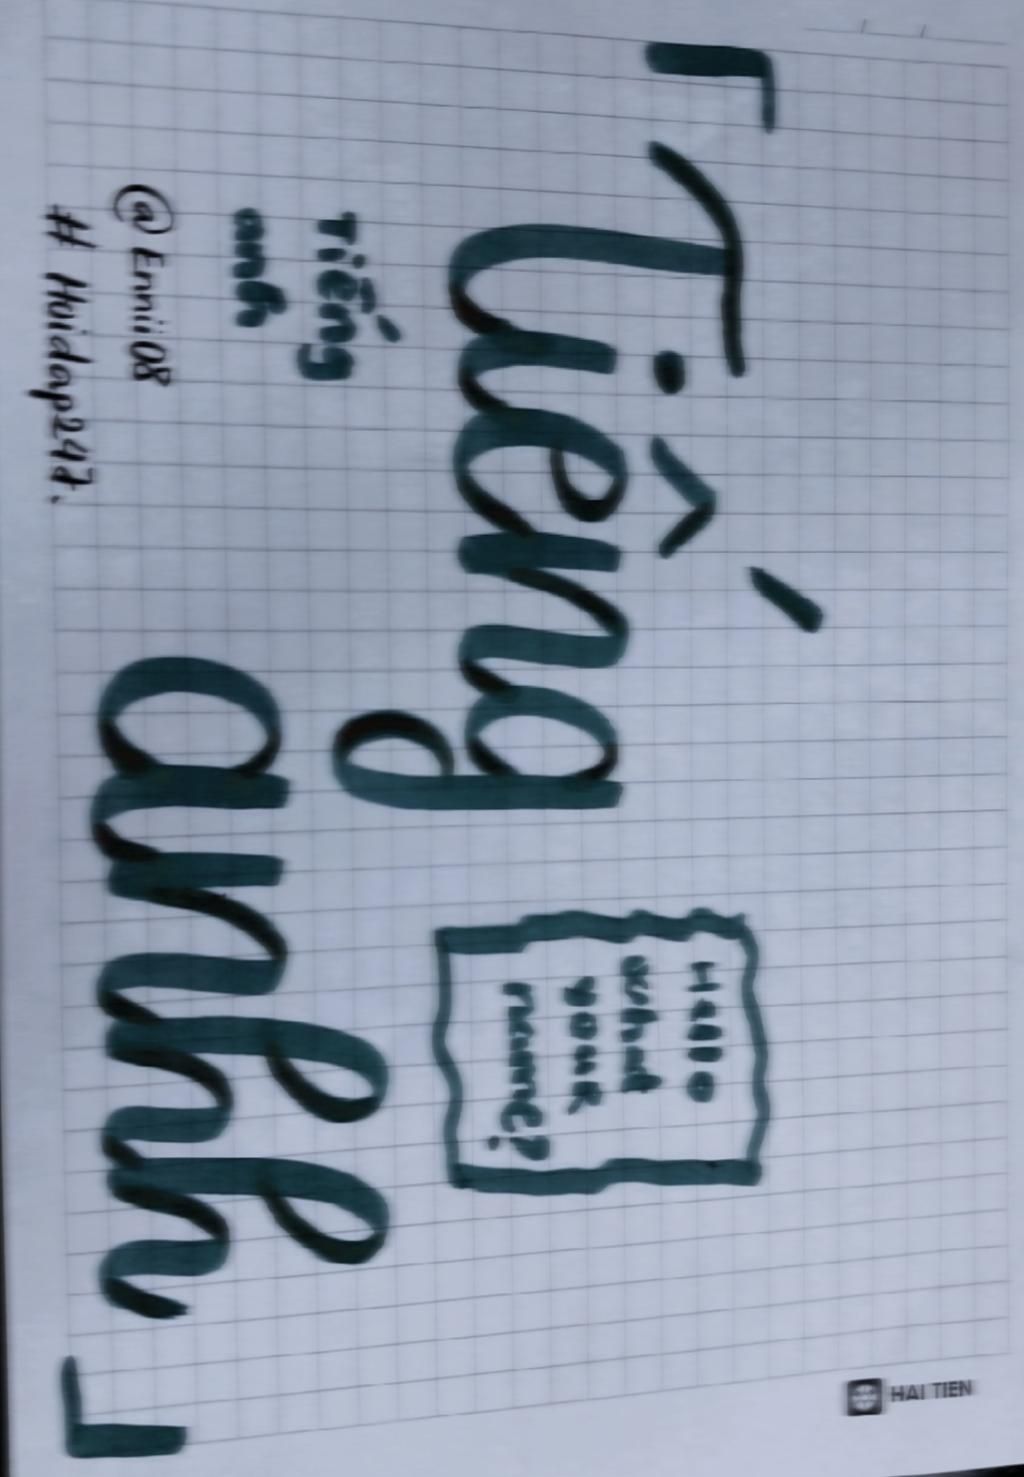 Tiếng
anhh
Hello
what
your
name?
Tiếng
anh
@Ennii08
# Hoidap247.
HAI TIEN